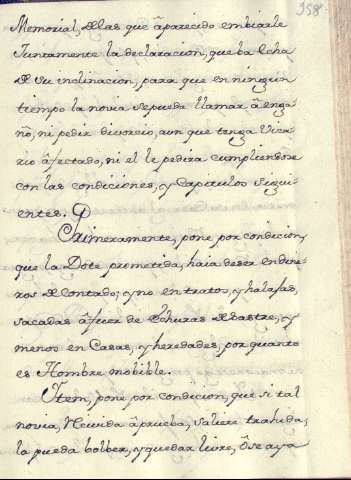 358
Memorial, de las que â parecido embiarle
Juntamente la declaracion, que ha echa
de su inclinacion, para que en ningun
tiempo la novia se pueda llamar â enga
ño, ni pedir divorcio, aun que tenga Vica
rio afectado, ni el le pedira cumpliendose
con las condiciones, y Capitulos sigui-
entes.
Primeramente, pone por condicion,
que la Dote prometida, haia de ser en dine-
ros de Contado; y no en tratos, y halajas,
sacadas â fuer de hechuras de sastre, y
menos en Casas, y heredades, por quanto
es Hombre mobible.
Vtem, pone por condicion, que si tal
novia, âprueba, saliere trahida,
la pueda bolber, y quedar libre, ô se aya